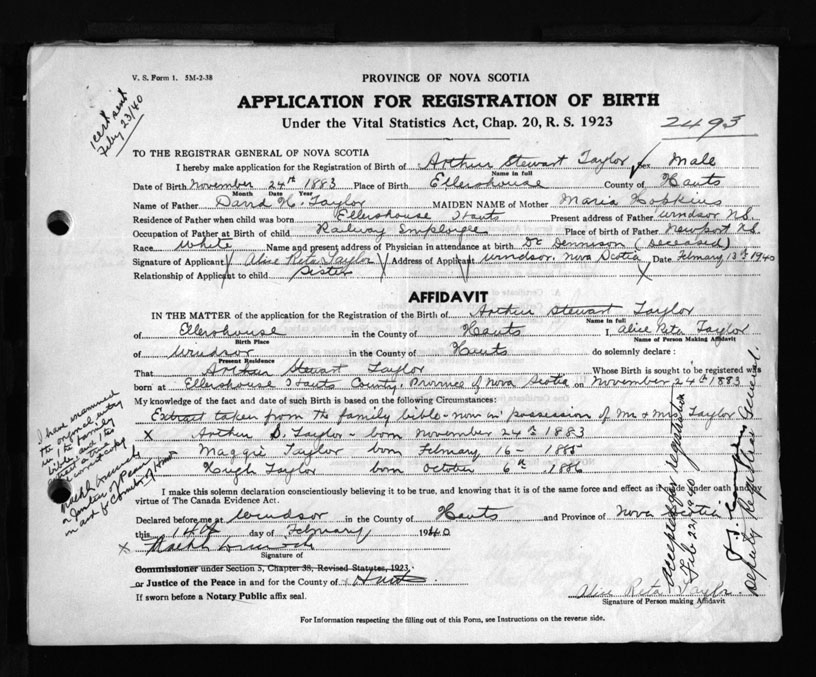 V. S. Form 1. 5M-2-38
PROVINCE OF NOVA SCOTIA
1 cert sent
Feby 23/40
APPLICATION FOR REGISTRATION OF BIRTH
Under the Vital Statistics Act, Chap. 20, R. S. 1923
2493
TO THE REGISTRAR GENERAL OF NOVA SCOTIA
I hereby make application for the Registration of Birth of Arthur Stewart Taylor Sex Male
Name in full
Date of Birth November 24th 1883 Place of Birth Ellershouse County of Hants
Month Date Year
Name of Father David H. Taylor MAIDEN NAME of Mother Maria Hopkins
Residence of Father when child was born Ellershouse Hants Present address of Father Windsor N.S.
Occupation of Father at Birth of child Railway Employee Place of birth of Father Newport N.S.
Race White Name and present address of Physician in attendance at birth Dr Dennison (Deceased)
Signature of Applicant Alice Reta Taylor Address of Applicant Windsor, Nova Scotia Date February 13th 1940
Relationship of Applicant to child Sister
AFFIDAVIT
IN THE MATTER of the application for the Registration of the Birth of Arthur Stewart Taylor
Name in full
of Ellershouse in the County of Hants I, Alice Reta Taylor
Birth Place Name of Person Making Affidavit
of Windsor in the County of Hants do solemnly declare:
Present Residence
That Arthur Stewart Taylor Whose Birth is sought to be registered was
born at Ellershouse Hants County, Province of Nova Scotia on November 24th 1883
My knowledge of the fact and date of such Birth is based on the following Circumstances:
Extract taken from the family bible - now in possession of Mr & Mrs Taylor
x Arthur S. Taylor - born November 24th 1883
Maggie Taylor - born February 16 - 1885
Hugh Taylor born October 6th 1886
I have examined
the original entry
in the family
bible and
in and for County of Hants
I make this solemn declaration conscientiously believing it to be true, and knowing that it is of the same force and effect as if made under oath and by
virtue of The Canada Evidence Act.
Declared before me at Windsor in the County of Hants and Province of Nova Scotia
this 14th day of February 1940
x
Signature of
Commissioner under Section 5, Chapter 38, Revised Statutes, 1923,
or Justice of the Peace in and for the County of Hants
If sworn before a Notary Public affix seal.
Alice Reta Taylor
Signature of Person making Affidavit
Accepted for registration
Feb 22 1940
Deputy Registrar General.
For Information respecting the filling out of this Form, see Instructions on the reverse side.